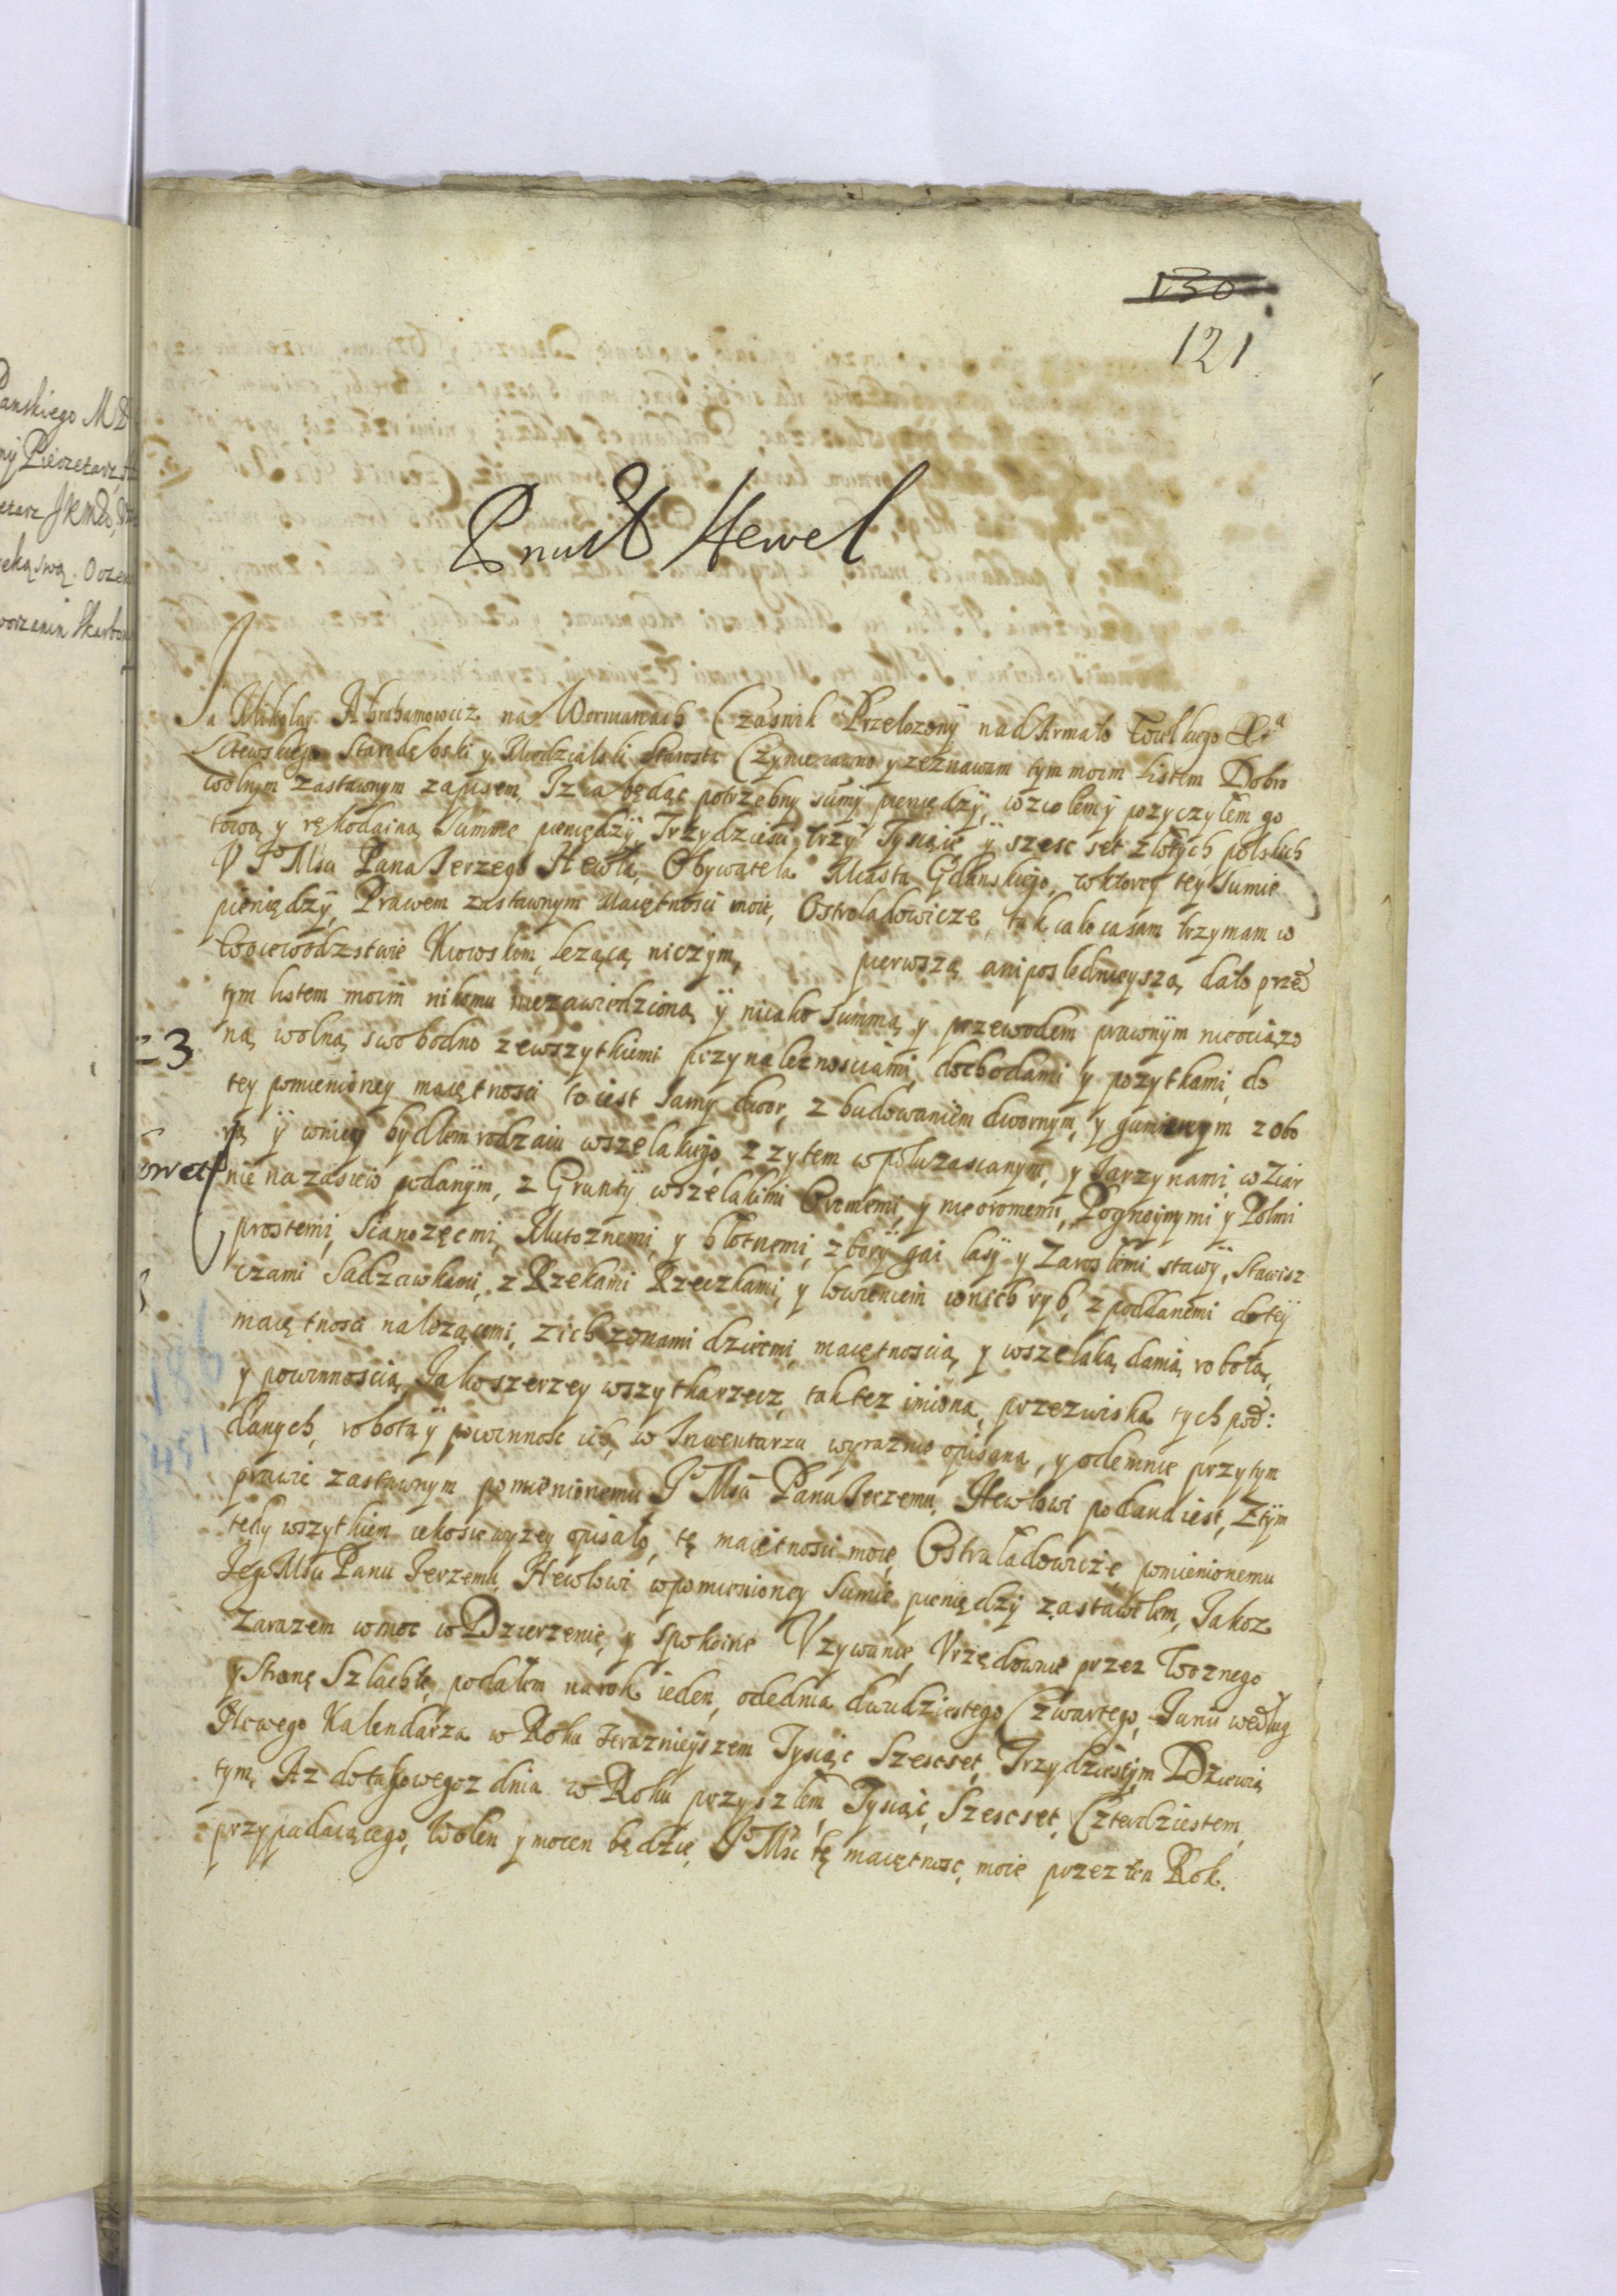 130
121
Hewel
Ja Mikolay Abrahamowicz na Wornianach Czasnik Przelozony nad Armato Wielkiego Xa
Litewskiego Starodębski y Modzialski Starosta Czynie iawno y zeznawam tym moim Listem Dobro
wolnym zastawnym zapisem, Iz ia będąc potrzebny sumy pieniędzy, wziolem y pozyczylem go
tową y rękodaina Summe pieniędzy Trzydziesci trzy Tysiące y szesc set zlotych polskich
V Jo Msci Pana Jerzego Hewla, Obywatela Miasta Gdanskiego, w ktorey tey Sumie
pieniędzy, Prawem zastawnym Maiętnosci moie, Ostroladowicze, tak iako ia sam trzymam w
Woiewodzstwie Kiowskim, lezącą niczym, pierwszą ani poslednieyszą, dato przed
tym listem moim nikomu niezawiedzioną y niiako Summą y przewodem prawnym nieociązo
ną wolną swobodno zewszytkiemi przynaleznosciami, dochodami y pozytkami, do
tey pomienioney maiętnosci to iest Samy dwor, z budowaniem dwornym, y gumiennym z obo
rą y wniey bydlem rodzaiu wszelakiego, z zytem w polu zasianym, y Jarzynami w Ziar
nie na zasiew podanym, z Grunty wszelakimi Oromemi, y nieoromemi, Pognoynymi y Polmi
prostemi, Sianozęcmi, Muroznemi, y blotnemi, z bory gai lasy y Zaroslemi stawy, Stawisz
czami Sadzawkami, z Rzekami Rzeczkami, y lowieniem wnich ryb, z poddanemi do tey
maiętnosci nalezącemi, z ich zonami dziecmi, maiętnoscią, y wszelaką danią, robotą,
y powinnoscią, Jako szerzey wszytka rzecz, tak tez imiona, przezwiska tych pod:
danych, robota y powinnosc ich, w Inwentarzu wyraznie opisana, y odemnie przytym
prawie zastawnym pomienionemu Jo Msci Panu Jerzemu, Hewlowi podana iest, Ztym
tedy wszytkiem iako sie wyzey opisalo, tę maiętnosci moię Ostraladowicze pomienionemu
Jego Msci Panu Jerzemu, Hewlowi wpomienioney Sumie pieniędzy zastawilem, Jakoz
Zarazem wmoc w Dzierzenie, y Spokoine Vzywanie, Vrzędownie przez Woznego
y Stronę Szlachtę, podalem na rok ieden, odednia dwudziestego Czwartego, Junii według
Nowego Kalendarza w Roku terazniejszem Tysiąc Szescset, Trzydziestym Dziewią
tym, Az do takowegoz dnia w Roku przyszlem, Tysiąc, Szescset, Czterdziestem,
przypadaiącego, Wolen y mocen będzie, Jo Msc tę maiętnosc, moie przez ten Rok.